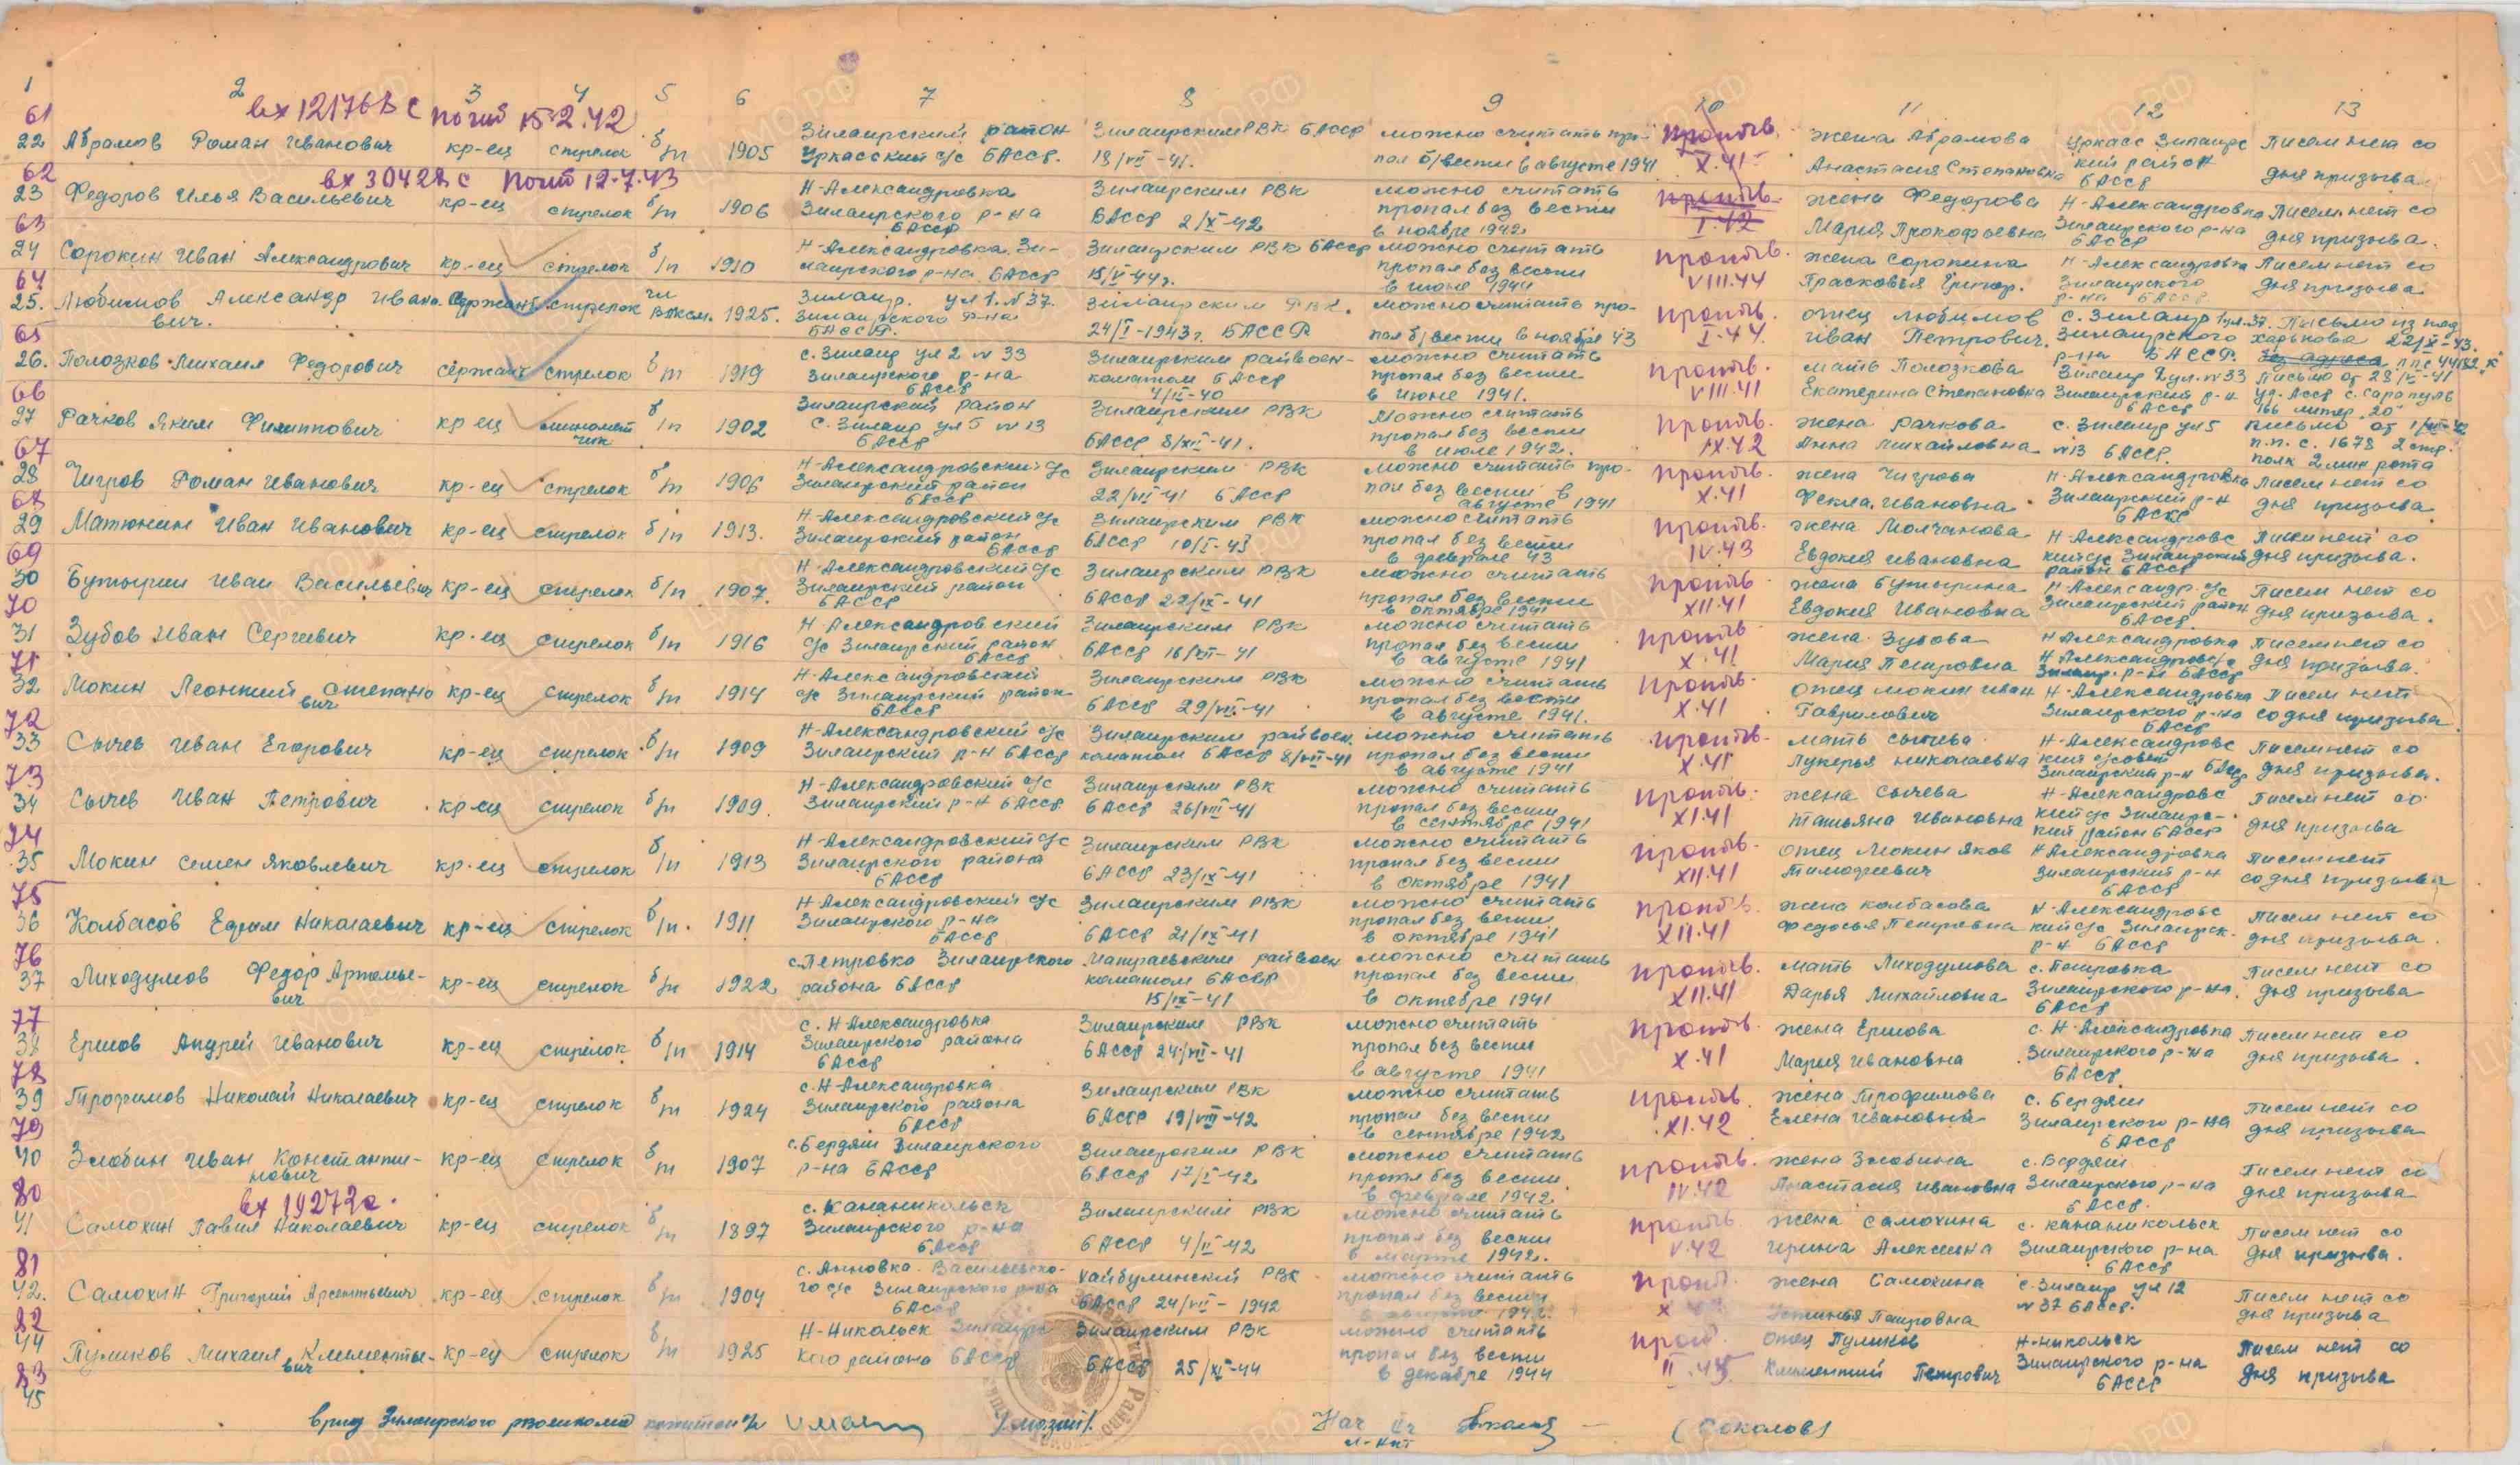 1 2 3 4 5 6 7 8 9 10 11 12 13
61 вх 12176вс погиб 15.2.42
22 Абрамов Роман Иванович кр-ец стрелок б/п 1905 Зилаирский район Уркасский с/с БАССР. Зилаирским РВК БАССР 18/VII-41. можно считать про- пал б/вести в августе 1941 проп.б/в. X.41 жена Абрамова Анастасия Степановна Уркасс Зилаирс кий район БАССР Писем нет со дня призыва
62 вх 30428с погиб 12.7.43
23 Федоров Илья Васильевич кр-ец стрелок б/п 1906 Н-Александровка Зилаирского р-на БАССР Зилаирским РВК БАССР 2/X-42 можно считать пропал без вести в ноябре 1942 I.42 жена Федорова Мария Прокофьевна Н-Александровка Зилаирского р-на БАССР Писем нет со дня призыва.
63
24 Сорокин Иван Александрович кр-ец стрелок б/п 1910 Н-Александровка Зи- лаирского р-на БАССР Зилаирским РВК БАССР 15/V-44г. можно считать пропал без вести в июне 1944 VIII.44 жена Сорокина Прасковья Григор. Н-Александровка Зилаирского р-на БАССР Писем нет со дня призыва
64
25. Любимов Александр Ивано- вич. Сержант стрелок чл ВЛКСМ. 1925. Зилаир. ул 1. №37. Зилаирского р-на БАССР. Зилаирским РВК. 24/I-1943г. БАССР можно считать про- пал б/вести в ноябре 43 I.44 отец Любимов Иван Петрович. с. Зилаир 1ул.37. Зилаирского р-на БАССР. Письмо из под Харькова 22/X-43.
65
26. Полозков Михаил Федорович сержант стрелок б/п 1919 с. Зилаир ул 2 №33 Зилаирского р-на БАССР Зилаирским райвоен- коматом БАССР можно считать пропал без вести в июне 1941. VIII.41 мать Полозкова Екатерина Степановна Зилаир 2ул. №33 Зилаирский р-н БАССР Сарапуль
66
27 Рачков Яким Филиппович кр-ец миномет чик б/п 1902 Зилаирский район с. Зилаир ул 5 №13 БАССР Зилаирским РВК БАССР 8/XII-41. Можно считать пропал без вести в июле 1942. IX.42 жена Рачкова Анна Михайловна с. Зилаир ул 5 №13 БАССР. п.п. с. 1678 2 стр. полк 2 мин рота
67
28 Чигров Роман Иванович кр-ец стрелок б/п 1906 Н-Александровский с/с Зилаирский район БАССР Зилаирским РВК 22/VII-41 БАССР можно считать про- пал без вести в августе 1941 X.41 жена Чигрова Фекла Ивановна Н-Александровка Зилаирский р-н Писем нет со дня призыва
68
29 Матюнин Иван Иванович кр-ец стрелок б/п 1913. Н-Александровский с/с Зилаирский район БАССР Зилаирским РВК БАССР 10/I-43 можно считать пропал без вести в феврале 43 IV.43 жена Молчанова Евдокия Ивановна Н-Александровс кий с/с Зилаирский район БАССР Писем нет со дня призыва.
69
30 Бутырин Иван Васильевич кр-ец стрелок б/п 1907. Н-Александровский с/с Зилаирский район БАССР Зилаирским РВК БАССР 22/IX-41 можно считать пропал без вести в октябре 1941 XII.41 жена Бутырина Евдокия Ивановна Н-Александр. с/с Зилаирский район БАССР Писем нет со дня призыва.
70
31 Зубов Иван Сергеевич кр-ец стрелок б/п 1916 Н-Александровский с/с Зилаирский район БАССР Зилаирским РВК БАССР 16/VII-41 можно считать пропал без вести в августе 1941 X.41 жена Зубова Мария Петровна Н Александровка Писем нет со дня призыва.
71
32 Мокин Леонтий Степано вич кр-ец стрелок б/п 1914 Н-Александровский с/с Зилаирский район БАССР Зилаирским РВК БАССР 29/VII-41 можно считать пропал без вести в августе 1941. X.41 отец Мокин Иван Гаврилович Н-Александровка Зилаирского р-на БАССР Писем нет со дня призыва
72
33 Сычев Иван Егорович кр-ец стрелок б/п 1909 Н-Александровский с/с Зилаирский р-н БАССР Зилаирским райвоен. коматом БАССР 8/VII-41 можно считать пропал без вести в августе 1941 X.41 мать Сычева Лукерья Николаевна Н-Александровс кий с/совет Зилаирский р-н БАССР Писем нет со дня призыва.
73
34 Сычев Иван Петрович кр-ец стрелок б/п 1909. Н-Александровский с/с Зилаирский р-н БАССР Зилаирским РВК БАССР 26/VIII-41 можно считать пропал без вести в сентябре 1941 XI.41 жена Сычева Татьяна Ивановна Н-Александровс кий с/с Зилаирс- кий район БАССР Писем нет со дня призыва
74
35 Мокин Семен Яковлевич кр-ец стрелок б/п 1913 Н-Александровский с/с Зилаирского района БАССР Зилаирским РВК БАССР 23/IX-41 можно считать пропал без вести в октябре 1941 XII.41 отец Мокин Яков Тимофеевич Н Александровка Зилаирский р-н БАССР Писем нет со дня призыва
75
36 Колбасов Ефим Николаевич кр-ец стрелок б/п. 1911 Н-Александровский с/с Зилаирского р-на БАССР Зилаирским РВК БАССР 21/IX-41 можно считать пропал без вести в октябре 1941 XII.41 жена Колбасова Федосья Петровна Н-Александровс кий с/с Зилаирск. р-н БАССР Писем нет со дня призыва.
76
37 Лиходумов Федор Артемье- вич кр-ец стрелок б/п 1922 с. Петровка Зилаирского района БАССР Матраевским райвоен коматом БАССР 15/IX-41 можно считать пропал без вести в октябре 1941 XII.41 мать Лиходумова Дарья Михайловна с. Петровка Зилаирского р-на. БАССР Писем нет со дня призыва
77
38 Ершов Андрей Иванович кр-ец стрелок б/п 1914 с. Н-Александровка Зилаирского района БАССР Зилаирским РВК БАССР 24/VII-41 можно считать пропал без вести в августе 1941 X.41 жена Ершова Мария Ивановна с. Н-Александровка Зилаирского р-на БАССР. Писем нет со дня призыва.
78
39 Трофимов Николай Николаевич кр-ец стрелок б/п 1924 с. Н-Александровка Зилаирского района БАССР Зилаирским РВК БАССР 19/VIII-42 можно считать пропал без вести в сентябре 1942 XI.42 жена Трофимова Елена Ивановна с. Бердяш Зилаирского р-на БАССР Писем нет со дня призыва
79
40 Злобин Иван Константи- нович кр-ец стрелок б/п 1907 с. Бердяш Зилаирского р-на БАССР Зилаирским РВК БАССР 17/I-42 можно считать пропал без вести в феврале 1942 IV.42 жена Злобина Анастасия Ивановна с. Бердяш Зилаирского р-на БАССР. Писем нет со дня призыва
80 вх 19272с.
41 Самохин Павел Николаевич кр-ец стрелок б/п 1897 с. Кананикольск Зилаирского р-на БАССР Зилаирским РВК БАССР 4/II-42 можно считать пропал без вести в марте 1942. V.42 жена Самохина Ирина Алексеевна с. Кананикольск Зилаирского р-на БАССР Писем нет со дня призыва.
81
42. Самохин Григорий Арсентьевич кр-ец стрелок б/п 1904 с. Анновка Васильевско- го с/с Зилаирского р-на БАССР Хайбулинский РВК БАССР 24/VII-1942 можно считать пропал без вести жена Самохина Устинья Петровна с. Зилаир ул 12 №37 БАССР. Писем нет со дня призыва
82
44 Пуликов Михаил Клименть- евич кр-ец стрелок б/п 1925 Н-Никольск Зилаирс кого района БАССР Зилаирским РВК БАССР 25/XI-44 можно считать пропал без вести в декабре 1944 II.45 отец Пуликов Климентий Петрович Н-Никольск Зилаирского р-на БАССР Писем нет со дня призыва
83
45
Врид Зилаирского райвоенкома капитан Нач IIч л-нт (Соколов)